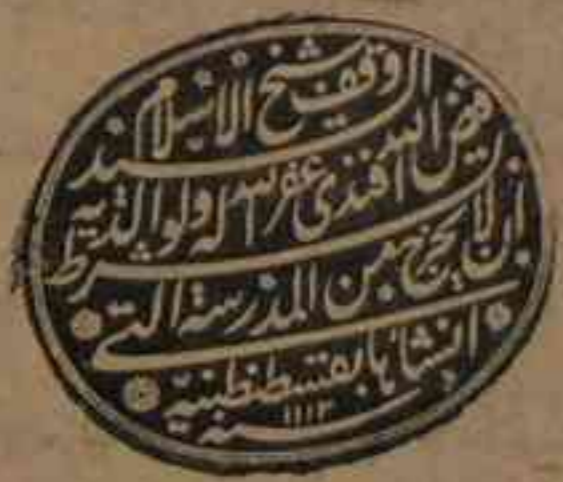 وقف شيخ الاسلام السيد
فيض الله افندى غفر الله له ولوالديه
بشرط أن لا يخرج من المدرسة التى
انشاها بقسطنطينية
سنه ١١١٢